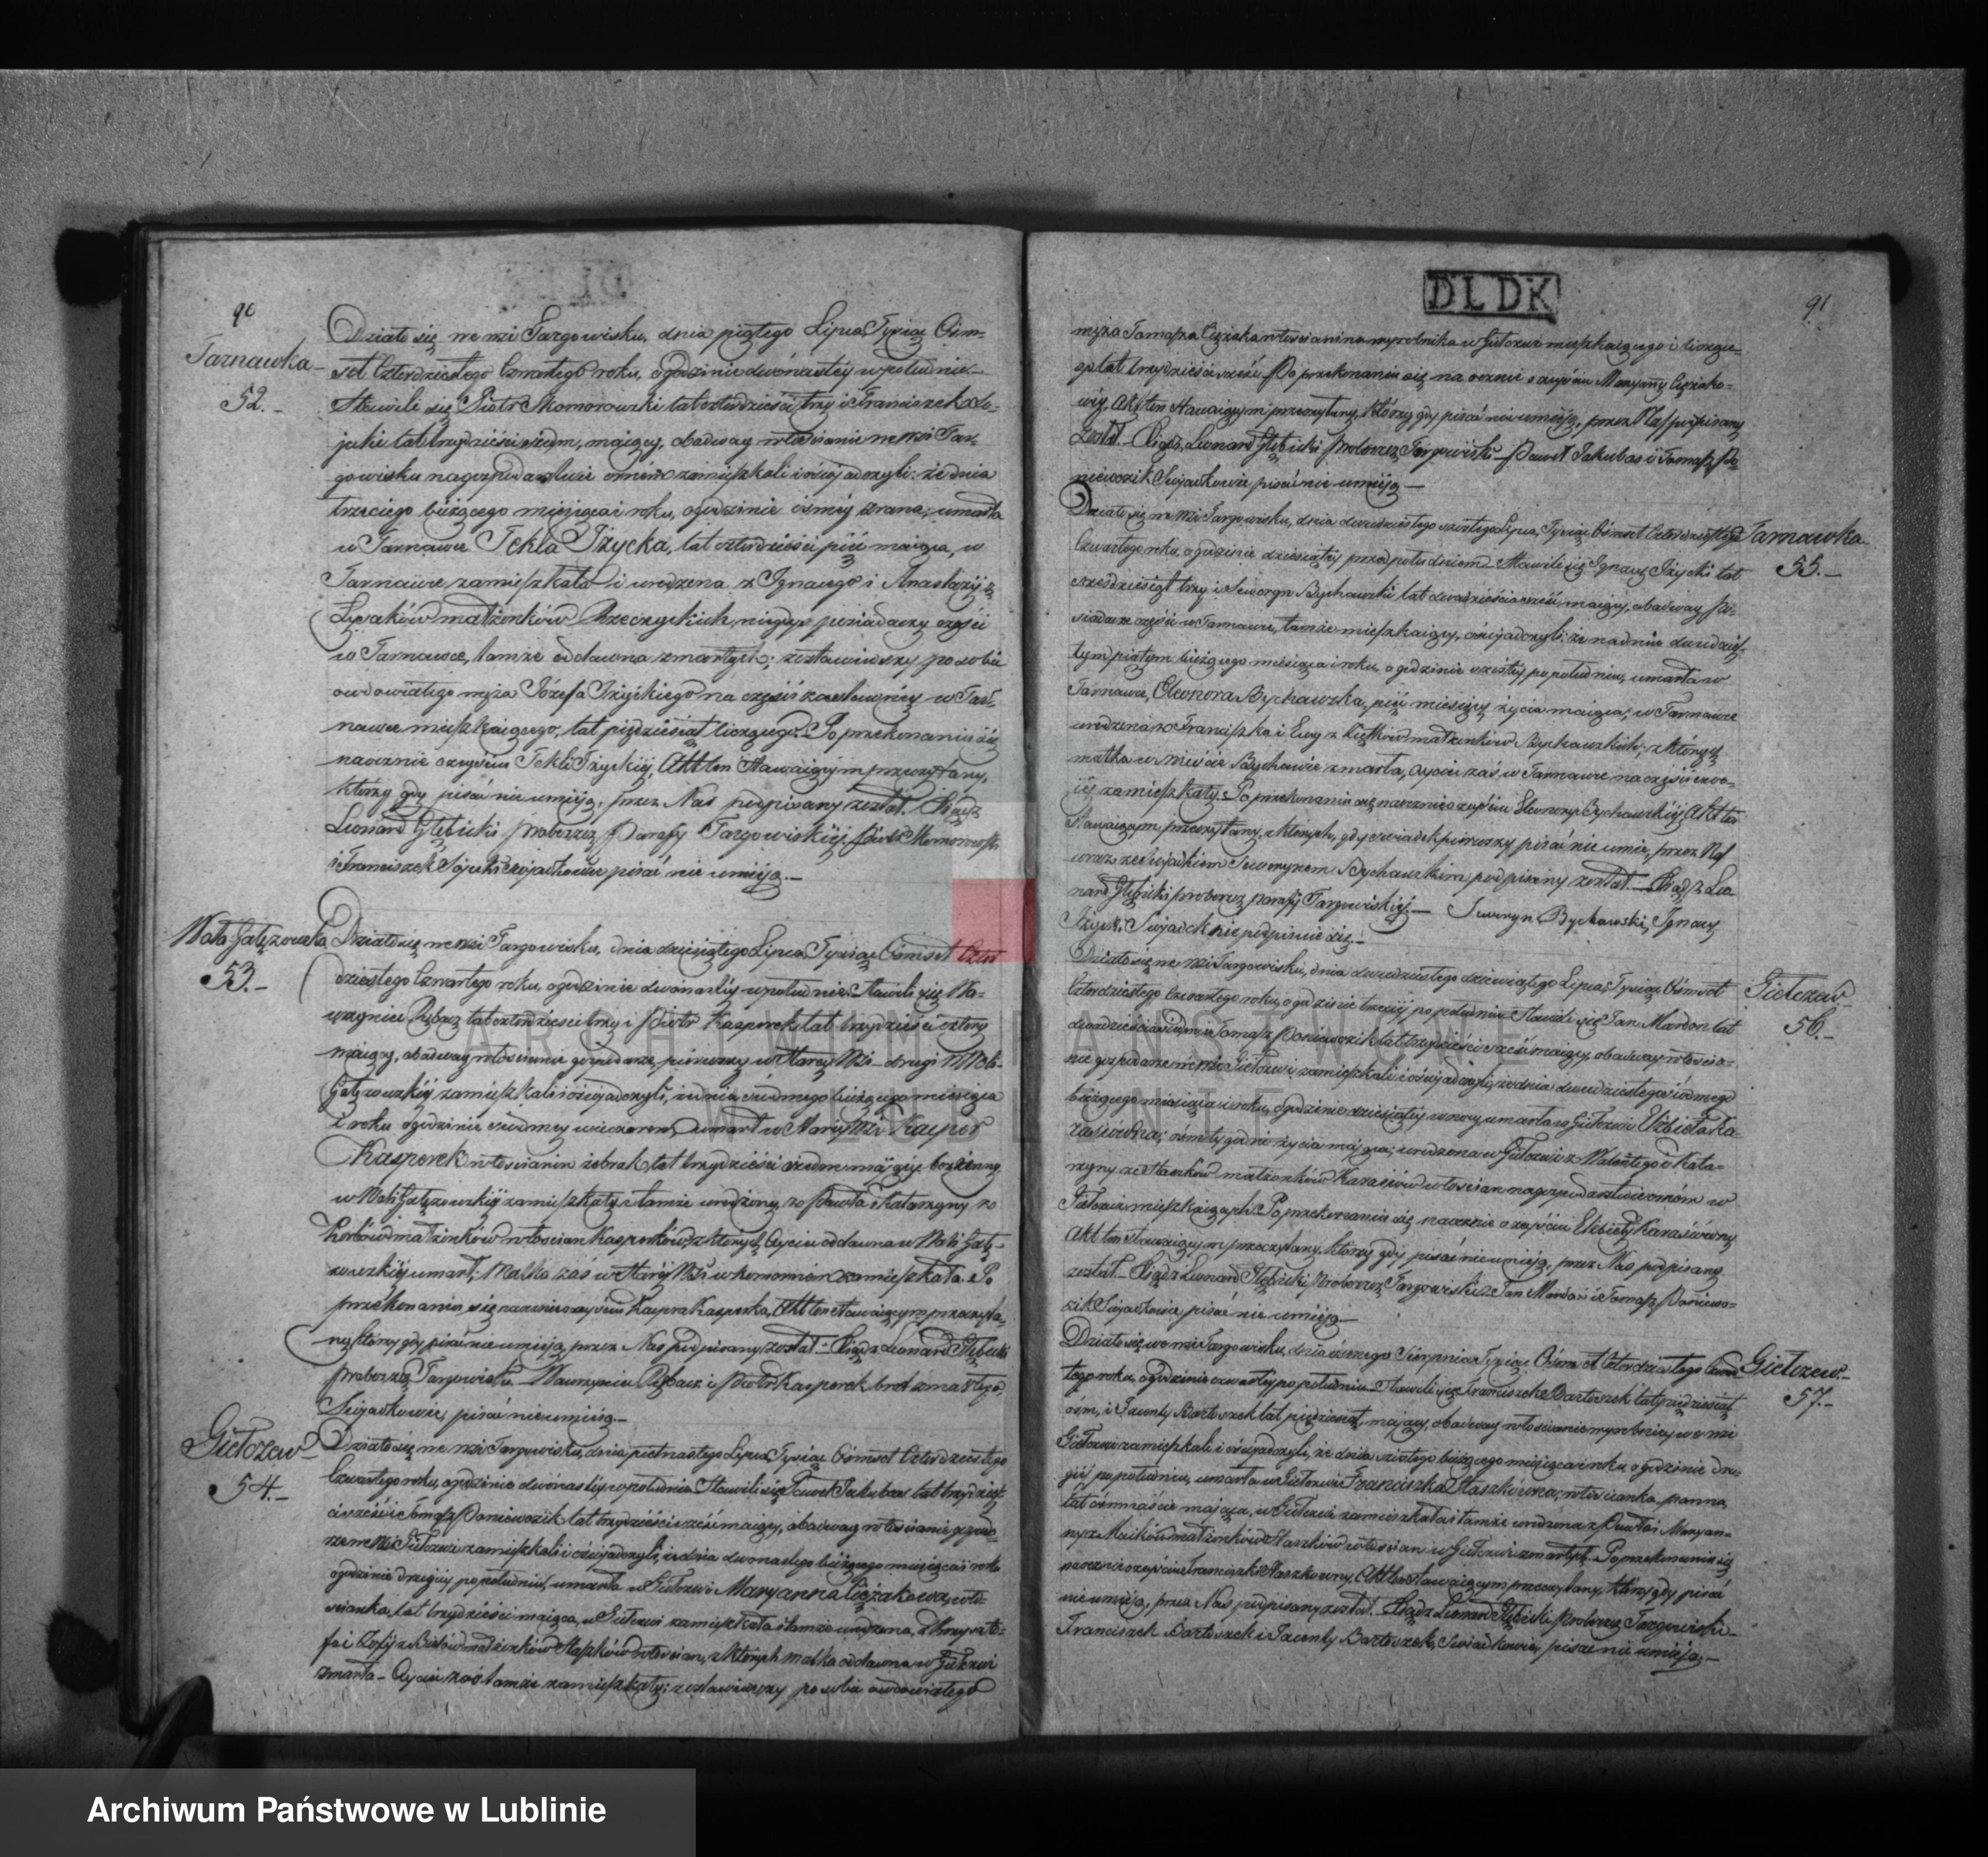 90
Tarnawka
52.
Działo się we wsi Targowisku, dnia piątego Lipca Tysiąc Ośm-
set Czterdziestego Czwartego roku, o godzinie dwónastey w południe.
Stawili się Piotr Momorowski lat czterdzieści trzy i Franciszek So-
jecki lat trzydzieści siedm, maiący, obadway włościanie we wsi Tar-
gowisku na gospodarstwie zamieszkali i oświadczyli: że dnia
trzeciego bieżącego miesiąca i roku, o godzinie ósméy zrana, umarła
w Tarnawce Tekla Iżycka, lat czterdzieści pięć maiąca, w
Tarnawce zamieszkała i urodzona z Ignacego i Anastazyi z
małżonków Rzeczyckich, niegdyś posiadaczy części
w Tarnawce, tamże oddawna zmarłych; zostawiwszy po sobie
owdowiałego męża Józefa Iżyckiego na części w Tar-
nawce mieszkaiącego, lat pięćdziesiąt liczącego. Po przekonaniu się
naocznie o zejściu Tekli Iżyckiéj, Akt ten stawaiącym przeczytany,
którzy gdy pisać nie umieją, przez Nas podpisany został. Xiądz
Leonard Głębicki Proboszcz Parafii Targowiskiéj. Piotr Momorowski
i Franciszek Sojecki świadkowie pisać nie umieją.
Wola Gałęzowska
53.
Działo się we wsi Targowisku, dnia dziesiątego Lipca Tysiąc Ośmset Czter-
dziestego Czwartego roku, o godzinie dwónastéy w południe. Stawili się Wa-
wrzyniec Rębacz lat czterdzieści trzy i Piotr Kasperek lat trzydzieści cztery
maiący, obadway włościanie gospodarze, pierwszy w Starey Wsi drugi w Woli
Gałęzowskiéy zamieszkali i oświadczyli, że dnia siódmego bieżącego miesiąca
i roku o godzinie siódmey wieczorem, umarł w Starey Wsi Kasper
Kasperek włościanin żebrak, lat trzydzieści siedm maiący bezżenny
w Woli Gałęzowskiéy zamieszkały i tamże urodzony, z Pawła i Katarzyny z
małżonków włościan Kasperków, z których Oyciec oddawna w Woli Gałę-
zowskiéy umarł, Matka zaś w Starey Wsi w komornem zamieszkała. Po
przekonaniu się naocznie o zejściu Kaspra Kasperka, Akt ten stawaiącym przeczyta-
ny, którzy gdy pisać nie umieją, przez Nas podpisany został. Xiądz Leonard Głębicki
proboszcz Targowiski. Wawrzyniec Rębacz i Piotr Kasperek brat zmarłego,
Świadkowie, pisać nie umieją.
Giełczew
54.
Działo się we wsi Targowisku, dnia piętnastego Lipca Tysiąc Ośmset Czterdziestego
Czwartego roku, o godzinie dwónastéy w południe. Stawili się Paweł Jakubas lat trzydzieś-
ci sześć i Tomasz Poniewozik lat trzydzieści sześć maiący, obadway włościanie gospoda-
rze we wsi Giełczwi zamieszkali i oświadczyli, że dnia dwónastego bieżącego miesiąca i roku
o godzinie drugiéy po południu, umarła w Giełczwi Maryanna Ciężakowa, wło-
ścianka, lat trzydzieści maiąca, w Giełczwi zamieszkała i tamże urodzona, z Krzyszto-
fa i Zofii z małżonków włościan, z których matka oddawna w Giełczwi
zmarła. Oyciec zaś tamże zamieszkały; zostawiwszy po sobie owdowiałego
DLDK
91
męża Tomasza Ciężaka włościanina wyrobnika w Giełczwi mieszkaiącego i liczące-
go lat trzydzieści sześć. Po przekonaniu się naocznie o zejściu Maryanny Ciężako-
wéy, Akt ten stawaiącym przeczytany, którzy gdy pisać nie umieją, przez Nas podpisany
został. Xiądz Leonard Głębicki Proboszcz Targowiski. Paweł Jakubas i Tomasz Po-
niewozik Świadkowie pisać nie umieją
Tarnawka
55.
Działo się we wsi Targowisku, dnia dwudziestego szóstego Lipca, Tysiąc Ośmset Czterdziestego
Czwartego roku, o godzinie dziesiątéy przed południem. Stawili się Ignacy Iżycki lat
sześćdziesiąt trzy i Seweryn Bychawski lat dwadzieścia sześć maiący, obadway po-
siadacze części w Tarnawce, tamże mieszkaiący, oświadczyli: że na dniu dwudzies-
tym piątym bieżącego miesiąca i roku, o godzinie szóstéy po południu, umarła w
Tarnawce, Eleonora Bychawska, pięć miesięcy życia maiąca, w Tarnawce
urodzona z Franciszka i Ewy z małżonków Bychawskich, z których
matka w mieście Bychawie zmarła, Oyciec zaś w Tarnawce na części swo-
iéy zamieszkały. Po przekonaniu się naocznie o zejściu Eleonory Bychawskiéy, Akt ten
stawaiącym przeczytany, z których, gdy świadek pierwszy pisać nie umie, przez Nas
wraz ze świadkiem Sewerynem Bychawskim podpisany został. Xiądz Leo-
nard Głębicki proboszcz parafii Targowiskiéj. Seweryn Bychawski, Ignacy
Iżycki, Świadek nie podpisuie się.
Giełczew
56.
Działo się we wsi Targowisku, dnia dwudziestego dziewiątego Lipca, Tysiąc Ośmset
Czterdziestego Czwartego roku, o godzinie trzeciéy po południu. Stawili się Jan Mardoń lat
dwadzieścia siedm i Tomasz Poniewozik lat trzydzieści sześć maiący, obadway włościa-
nie gospodarze we wsi Giełczwi zamieszkali i oświadczyli, że dnia dwudziestego siódmego
bieżącego miesiąca i roku, o godzinie dziesiątéy w nocy umarła w Giełczwi Elżbieta Ka-
rasiówna; ośm tygodni życia maiąca; urodzona w Giełczwi z Walentego i Kata-
rzyny ze Staszków małżonków Karasiów włościan na gospodarstwie w
Giełczwi mieszkaiących. Po przekonaniu się naocznie o zejściu Elżbiety Karasiówny
Akt ten stawaiącym przeczytany, którzy gdy pisać nie umieją, przez Nas podpisany
został. Xiądz Leonard Głębicki Proboszcz Targowiski. Jan Mardoń i Tomasz Poniewo-
zik Świadkowie, pisać nie umieją
Giełczew
57.
Działo się we wsi Targowisku, dnia ósmego Sierpnia Tysiąc Ośmset Czterdziestego Czwar-
tego roku, o godzinie czwartéy po południu. Stawili się Franciszek Bartoszek lat pięćdziesiąt
ośm, i Jacenty Bartoszek lat pięćdziesiąt, maiący, obadway włościanie wyrobnicy we wsi
Giełczwi zamieszkali i oświadczyli, że dnia szóstego bieżącego miesiąca i roku o godzinie dru-
giéy po południu, umarła w Giełczwi Franciszka Staszkówna, włościanka, panna,
lat ośmnaście maiąca, w Giełczwi zamieszkała i tamże urodzona z Pawła i Maryan-
ny z Maików małżonków Staszków włościan w Giełczwi zmarłych. Po przekonaniu się
naocznie o zejściu Franciszki Staszkówny, Akt ten stawaiącym przeczytany, którzy gdy pisać
nie umieją, przez Nas podpisany został. Xiądz Leonard Głębicki Proboszcz Targowiski.
Franciszek Bartoszek i Jacenty Bartoszek, Świadkowie, pisać nie umieją.
ARCHIWUM PAŃSTWOWE
W LUBLINIE
Archiwum Państwowe w Lublinie